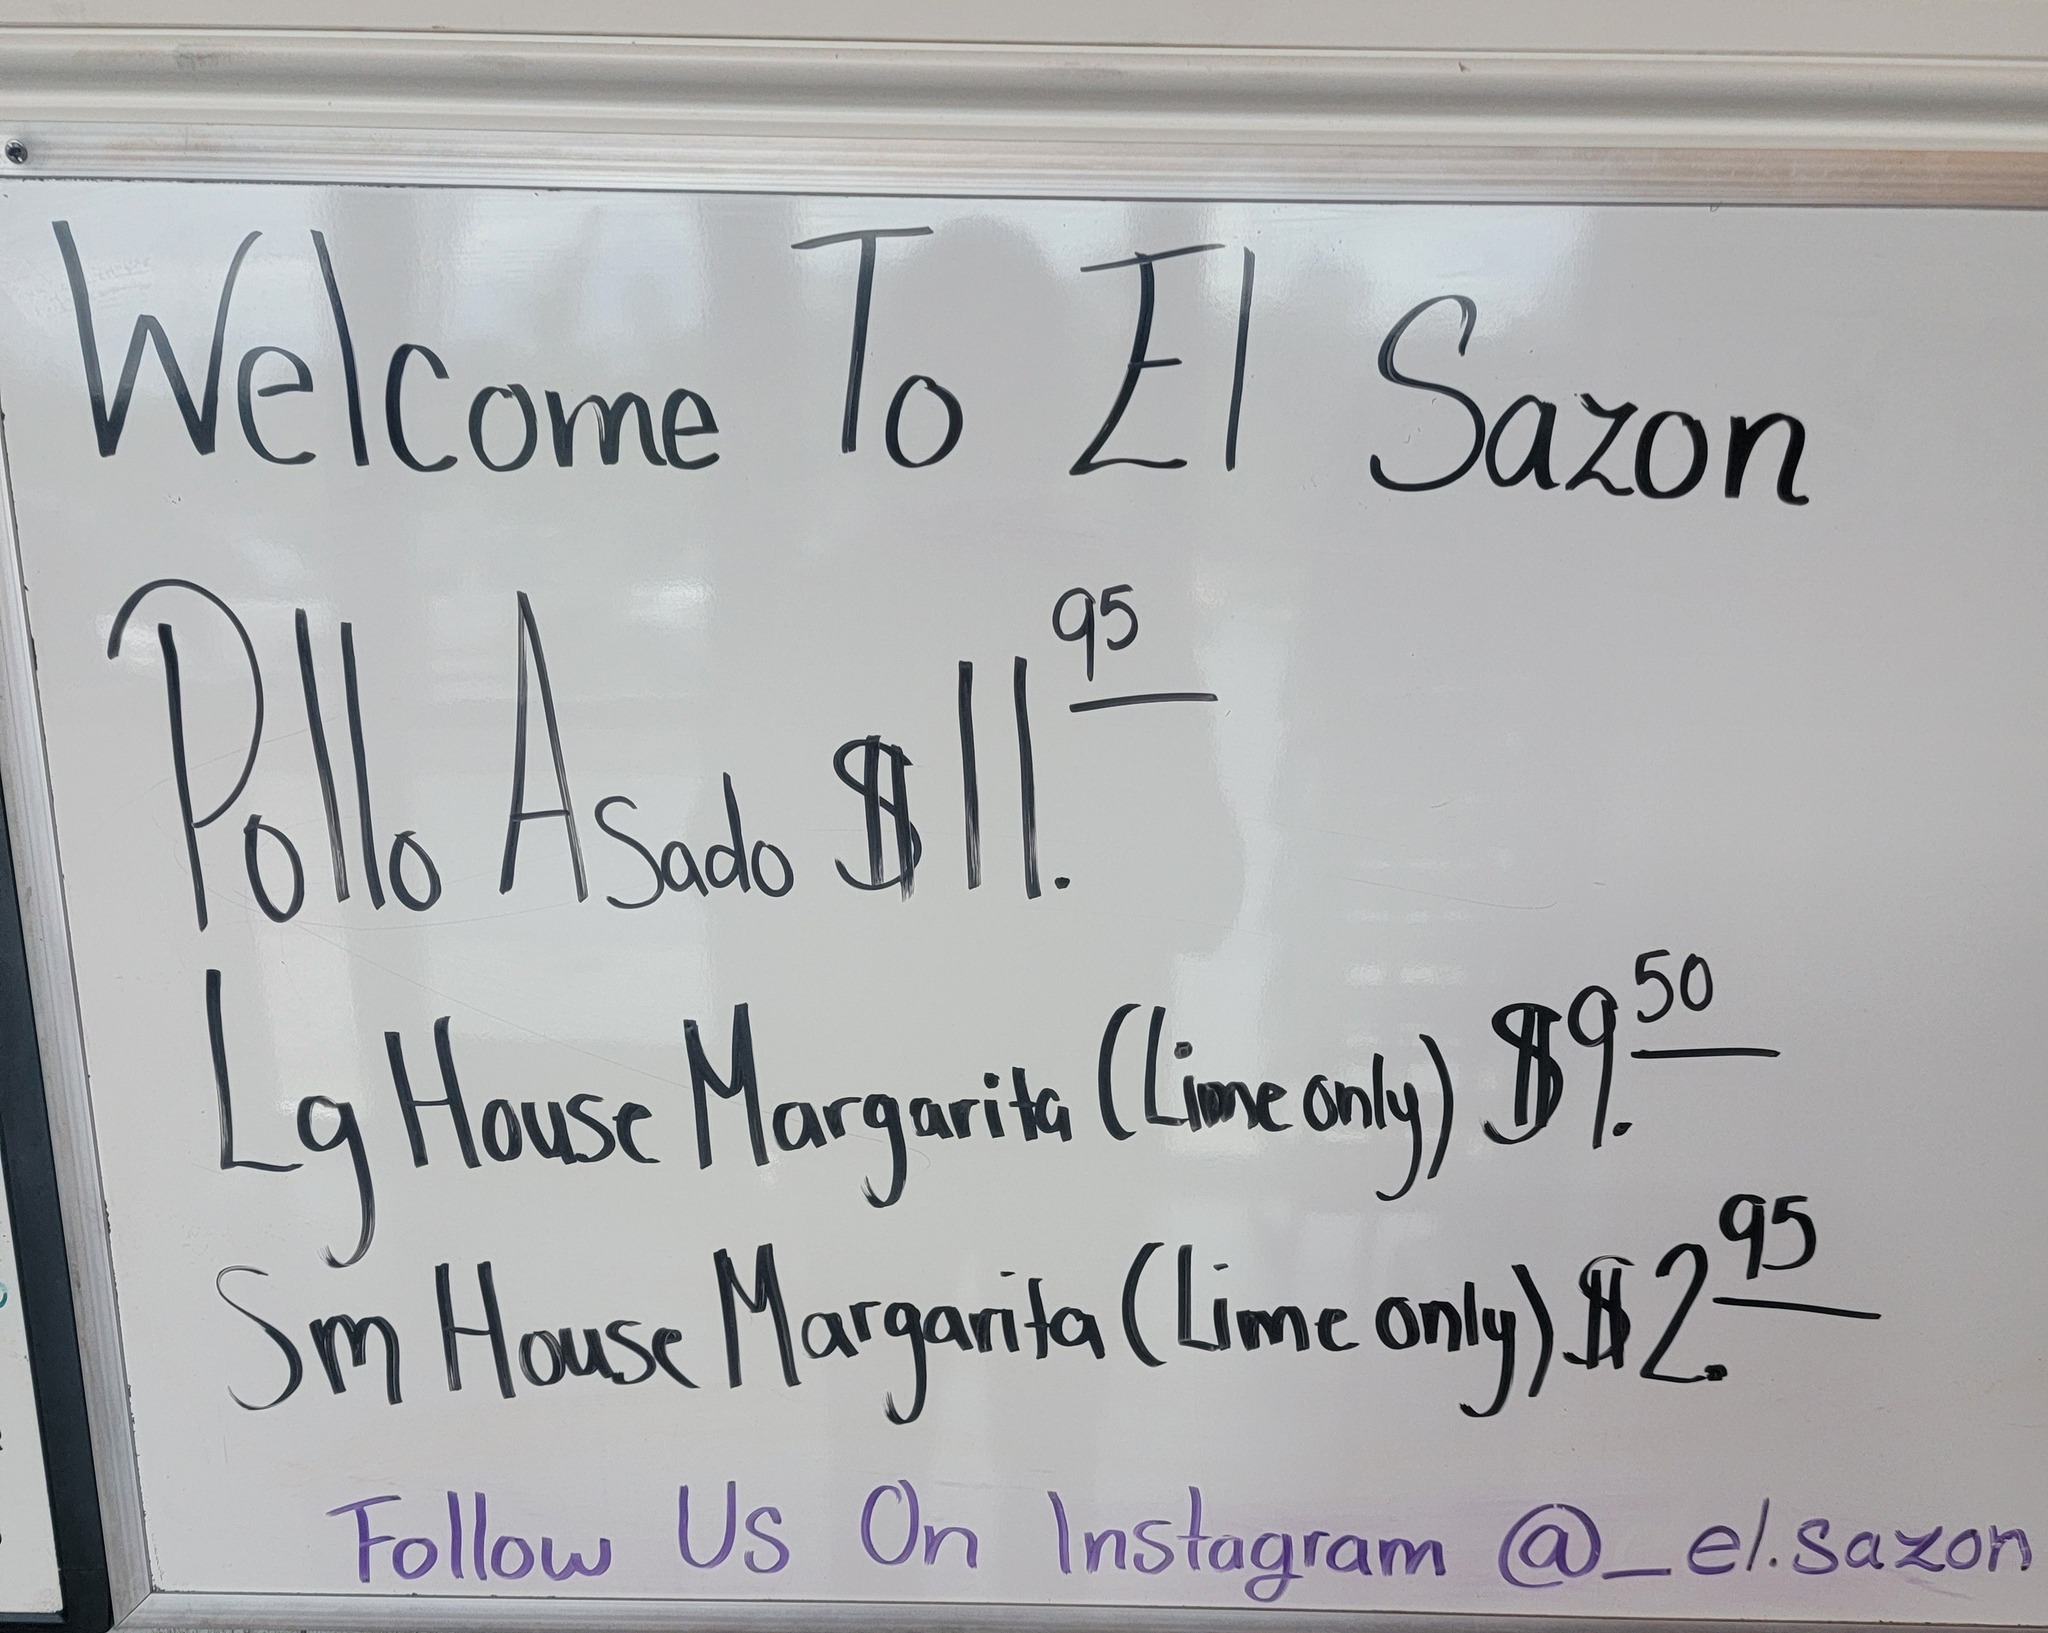 Welcome To El Sazon
Pollo Asado $11.95
Lg House Margarita (Lime only) $9.50
Sm House Margarita (Lime only) $2.95
Follow Us On Instagram @_el.sazon